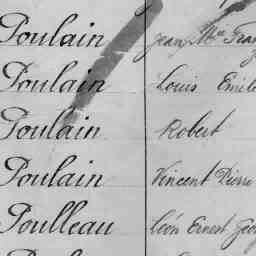 Poulain Jean, Mie Fran
Poulain Louis Emile
Poulain Robert
Poulain Vincent Pierre
Poulleau Léon Ernest Geo